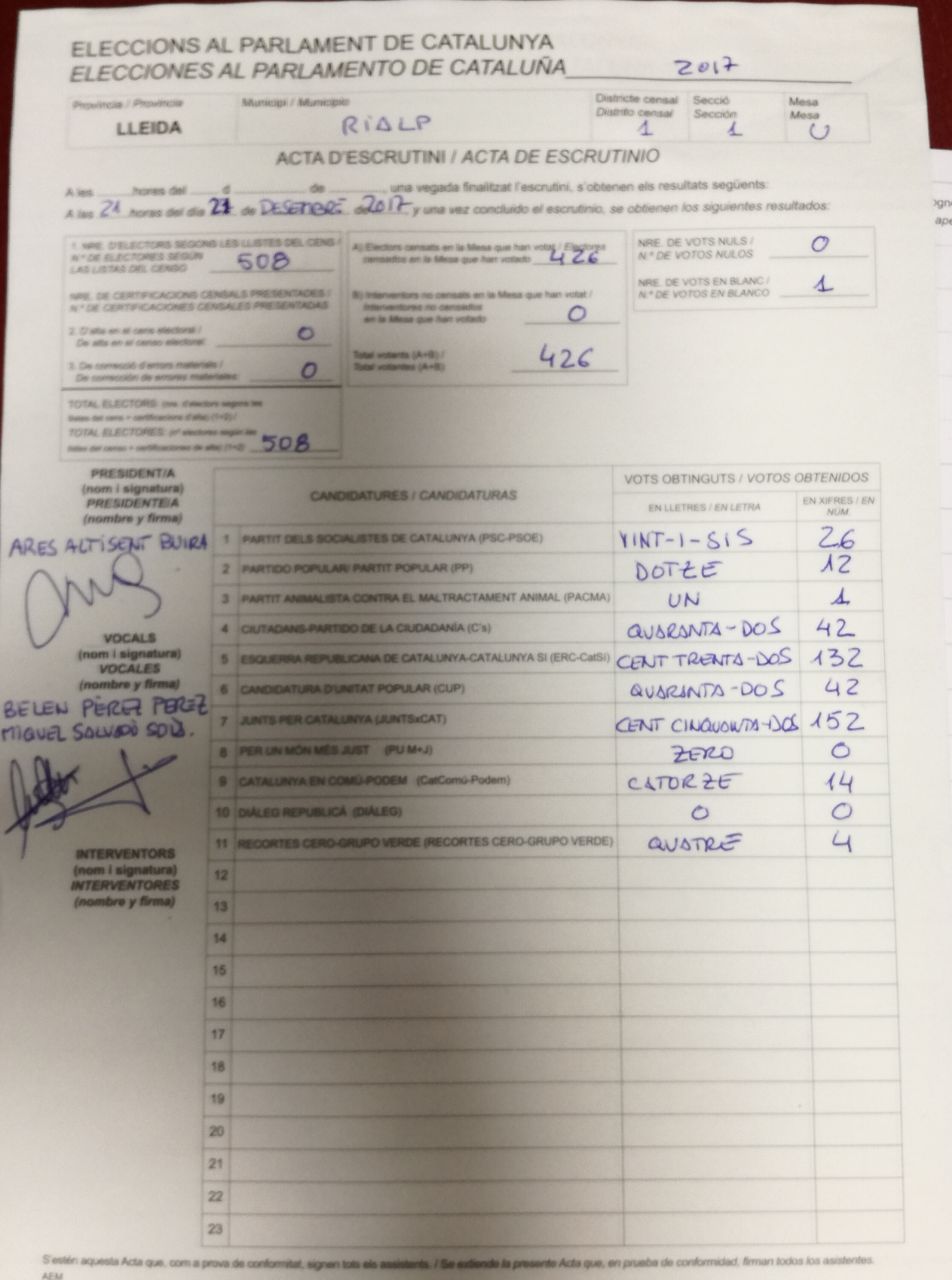 ELECCIONS AL PARLAMENT DE CATALUNYA
ELECCIONES AL PARLAMENTO DE CATALUÑA 2017
Província / Provincia
LLEIDA
Municipi / Municipio
RIALP
Districte censal
Distrito censal
1
Secció
Sección
1
Mesa
Mesa
U
ACTA D'ESCRUTINI / ACTA DE ESCRUTINIO
A les hores del d de , una vegada finalitzat l'escrutini, s'obtenen els resultats següents:
A las 21 horas del día 21 de DESEMBRE de 2017 y una vez concluido el escrutinio, se obtienen los siguientes resultados:
1. NRE. D'ELECTORS SEGONS LES LLISTES DEL CENS /
N.º DE ELECTORES SEGÚN
LAS LISTAS DEL CENSO 508
NRE. DE CERTIFICACIONS CENSALS PRESENTADES /
N.º DE CERTIFICACIONES CENSALES PRESENTADAS
2. D'alta en el cens electoral /
De alta en el censo electoral: 0
3. De correcció d'errors materials /
De corrección de errores materiales: 0
TOTAL ELECTORS: (nre. d'electors segons les
llistes del cens + certificacions d'alta) (1+2) /
TOTAL ELECTORES: (nº electores según las
listas del censo + certificaciones de alta) (1+2) 508
A) Electors censats en la Mesa que han votat / Electores
censados en la Mesa que han votado 426
B) Interventors no censats en la Mesa que han votat /
Interventores no censados
en la Mesa que han votado 0
Total votants (A+B) /
Total votantes (A+B) 426
NRE. DE VOTS NULS /
N.º DE VOTOS NULOS 0
NRE. DE VOTS EN BLANC /
N.º DE VOTOS EN BLANCO 1
PRESIDENT/A
(nom i signatura)
PRESIDENTE/A
(nombre y firma)
ARES ALTISENT BUIRA
VOCALS
(nom i signatura)
VOCALES
(nombre y firma)
BELEN PÈREZ PEREZ
MIGUEL SALVADÓ SOLÀ.
INTERVENTORS
(nom i signatura)
INTERVENTORES
(nombre y firma)
CANDIDATURES / CANDIDATURAS
VOTS OBTINGUTS / VOTOS OBTENIDOS
EN LLETRES / EN LETRA
EN XIFRES / EN
NÚM.
1 PARTIT DELS SOCIALISTES DE CATALUNYA (PSC-PSOE) VINT-I-SIS 26
2 PARTIDO POPULAR/ PARTIT POPULAR (PP) DOTZE 12
3 PARTIT ANIMALISTA CONTRA EL MALTRACTAMENT ANIMAL (PACMA) UN 1
4 CIUTADANS-PARTIDO DE LA CIUDADANÍA (C's) QUARANTA-DOS 42
5 ESQUERRA REPUBLICANA DE CATALUNYA-CATALUNYA SÍ (ERC-CatSí) CENT TRENTA-DOS 132
6 CANDIDATURA D'UNITAT POPULAR (CUP) QUARANTA-DOS 42
7 JUNTS PER CATALUNYA (JUNTSxCAT) CENT CINQUANTA-DOS 152
8 PER UN MÓN MÉS JUST (PU M+J) ZERO 0
9 CATALUNYA EN COMÚ-PODEM (CatComú-Podem) CATORZE 14
10 DIÀLEG REPUBLICÀ (DIÀLEG) 0 0
11 RECORTES CERO-GRUPO VERDE (RECORTES CERO-GRUPO VERDE) QUATRE 4
12
13
14
15
16
17
18
19
20
21
22
23
S'estén aquesta Acta que, com a prova de conformitat, signen tots els assistents. / Se extiende la presente Acta que, en prueba de conformidad, firman todos los asistentes.
AEM